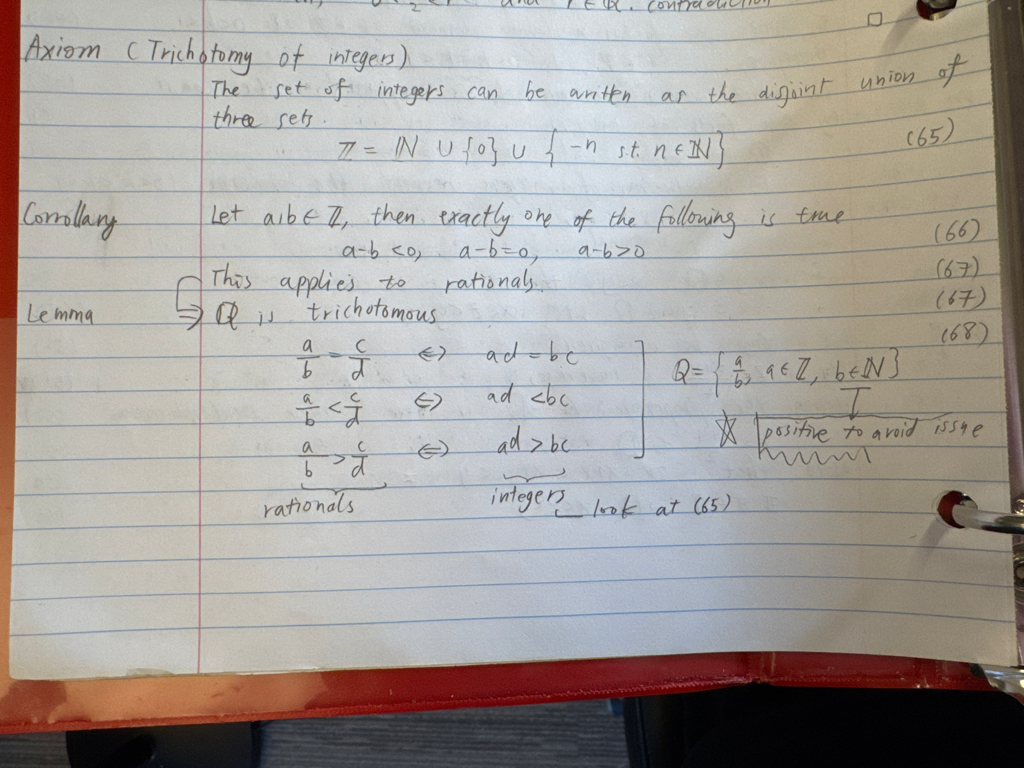 and r ∈ Q. contradiction
□
Axiom (Trichotomy of integers)
The set of integers can be written as the disjoint union of
three sets.
ℤ = ℕ ∪ {0} ∪ { -n s.t. n ∈ ℕ} (65)
Corrollary Let a,b ∈ ℤ, then exactly one of the following is true
a-b <0, a-b=0, a-b>0 (66)
This applies to rationals. (67)
Lemma ⇒ ℚ is trichotomous (67)
(68)
a/b = c/d ⇔ ad = bc
ℚ = { a/b, a ∈ ℤ, b ∈ ℕ}
a/b < c/d ⇔ ad < bc
☆ positive to avoid issue
a/b > c/d ⇔ ad > bc
rationals integers
look at (65)